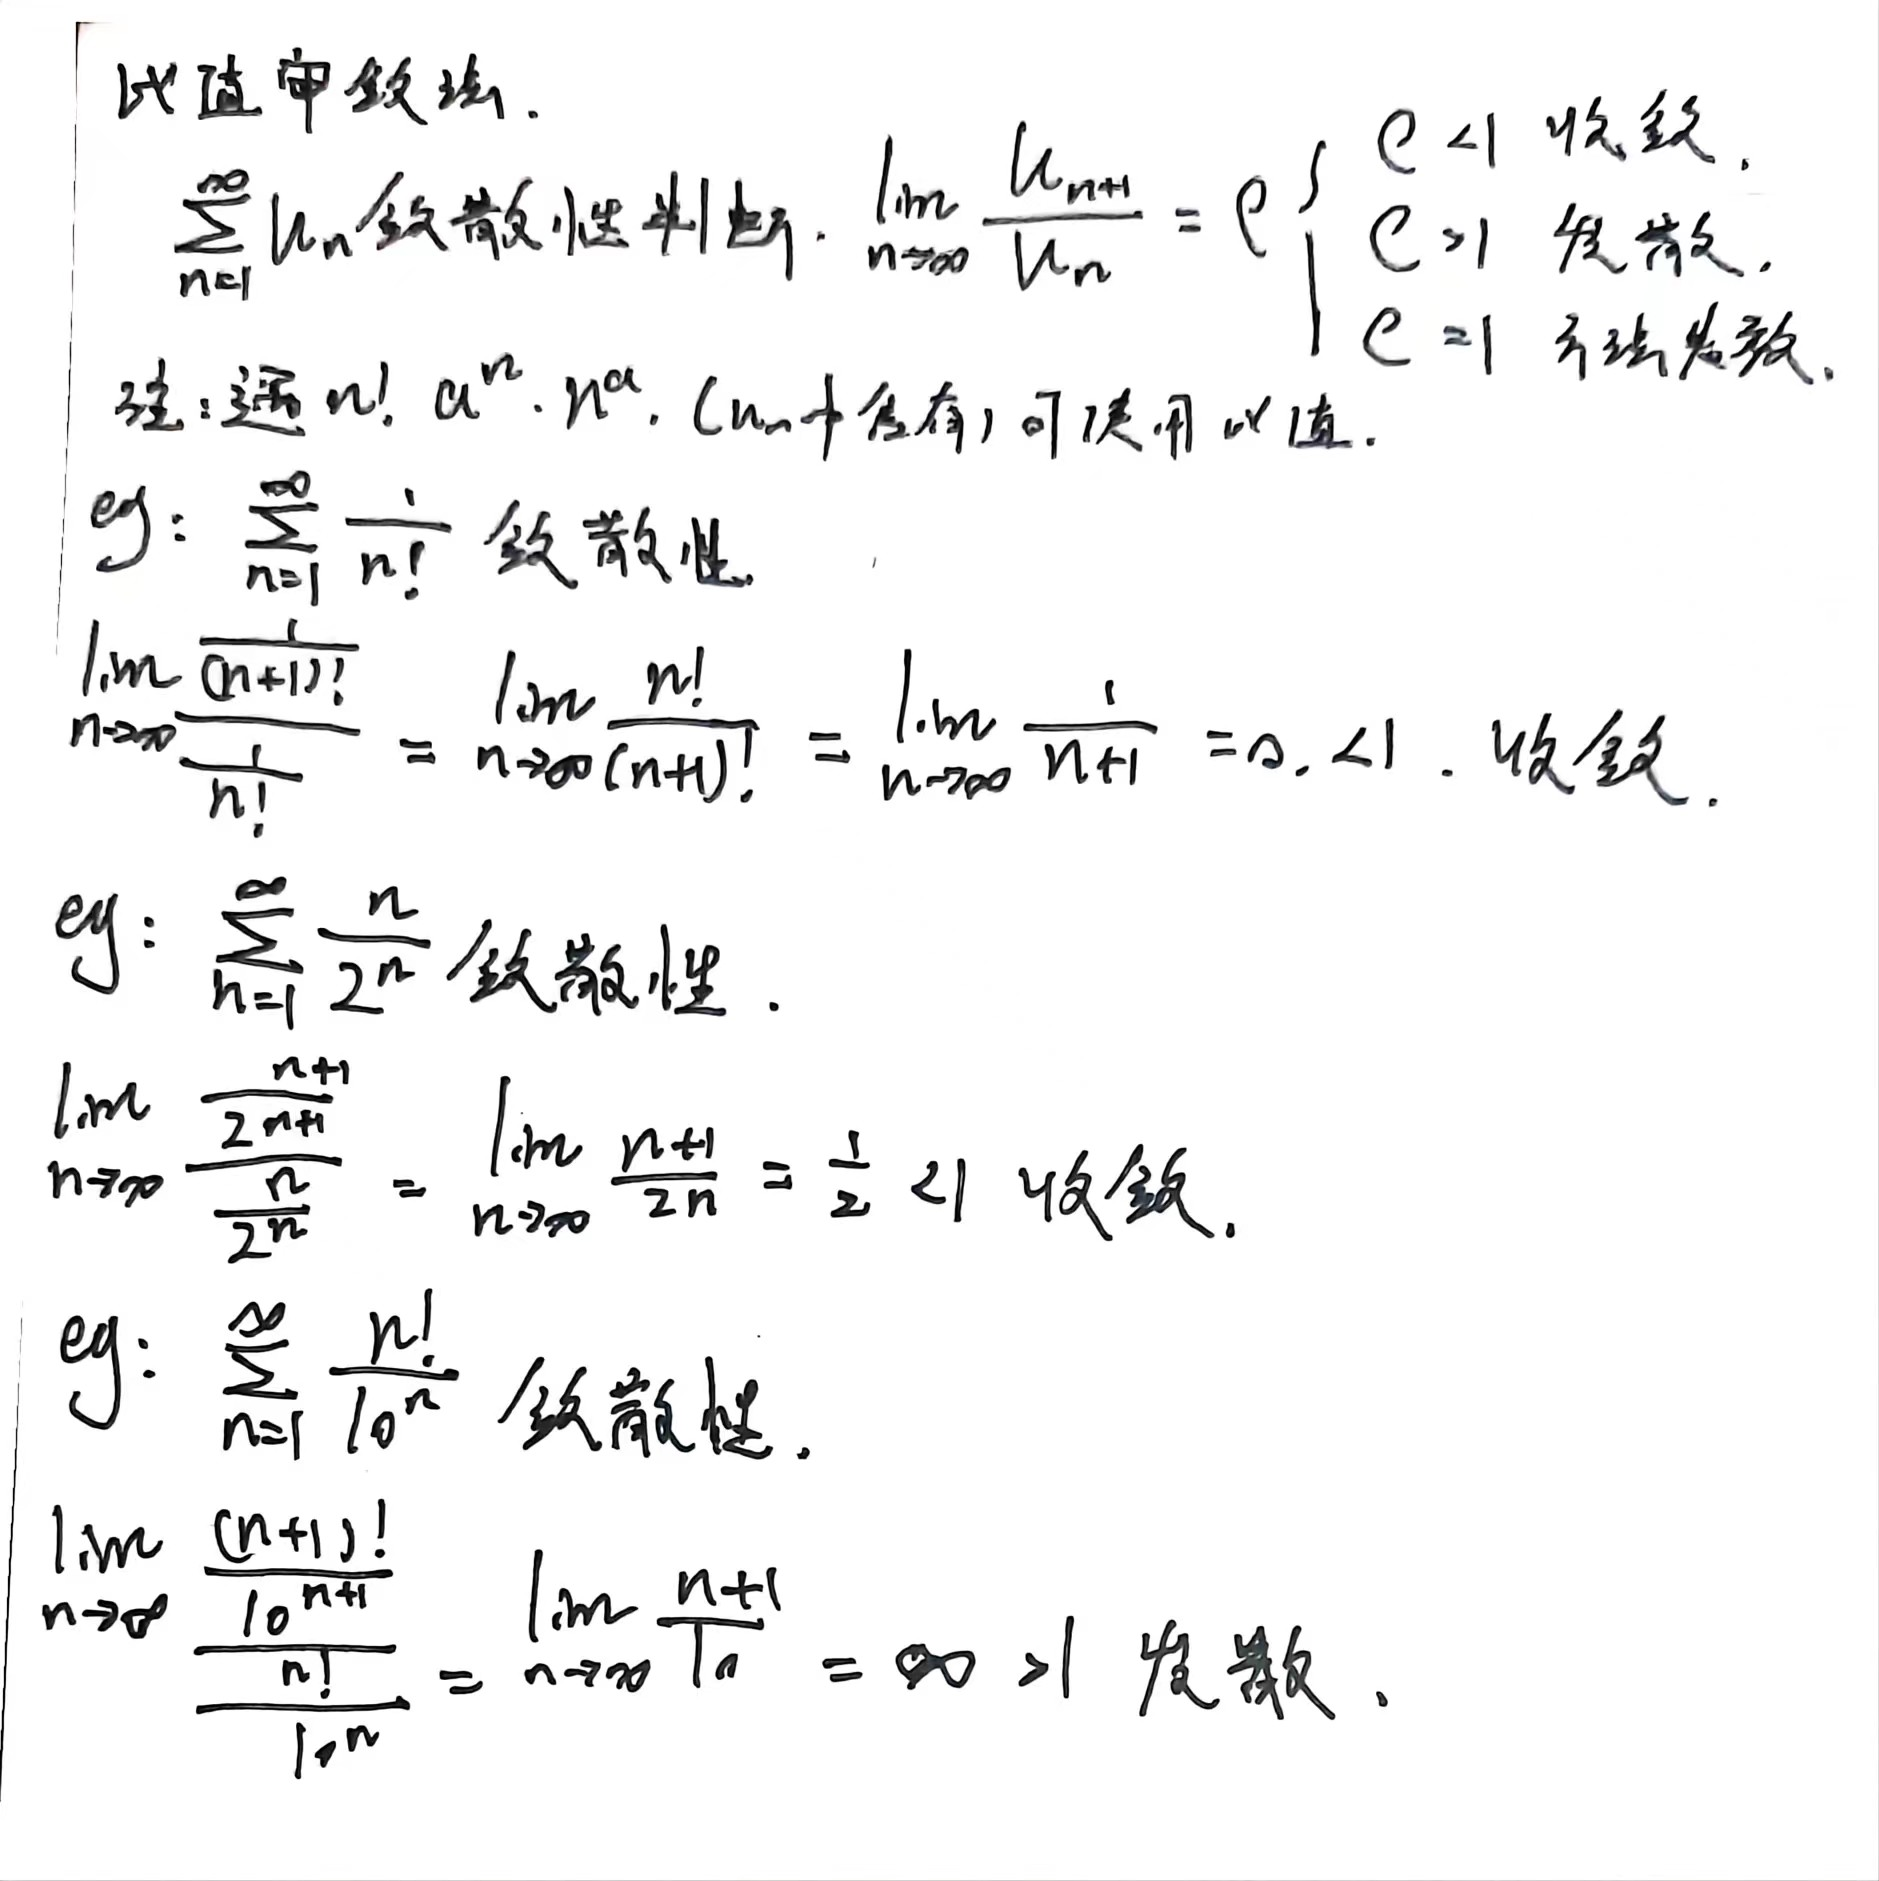 比值审敛法.
$\sum_{n=1}^{\infty} u_n$ 敛散性判断. $\lim_{n\to\infty} \frac{u_{n+1}}{u_n} = \rho \begin{cases} \rho<1 & 收敛. \\ \rho>1 & 发散. \\ \rho=1 & 方法失效. \end{cases}$
注:遇 $n!$ $a^n$. $n^a$. ($u_n$中含有) 可使用比值.
eg: $\sum_{n=1}^{\infty} \frac{1}{n!}$ 敛散性
$\lim_{n\to\infty} \frac{\frac{1}{(n+1)!}}{\frac{1}{n!}} = \lim_{n\to\infty} \frac{n!}{(n+1)!} = \lim_{n\to\infty} \frac{1}{n+1} = 0. <1. 收敛.$
eg: $\sum_{n=1}^{\infty} \frac{n}{2^n}$ 敛散性.
$\lim_{n\to\infty} \frac{\frac{n+1}{2^{n+1}}}{\frac{n}{2^n}} = \lim_{n\to\infty} \frac{n+1}{2n} = \frac{1}{2} <1 收敛.$
eg: $\sum_{n=1}^{\infty} \frac{n!}{10^n}$ 敛散性.
$\lim_{n\to\infty} \frac{\frac{(n+1)!}{10^{n+1}}}{\frac{n!}{10^n}} = \lim_{n\to\infty} \frac{n+1}{10} = \infty >1 发散.$